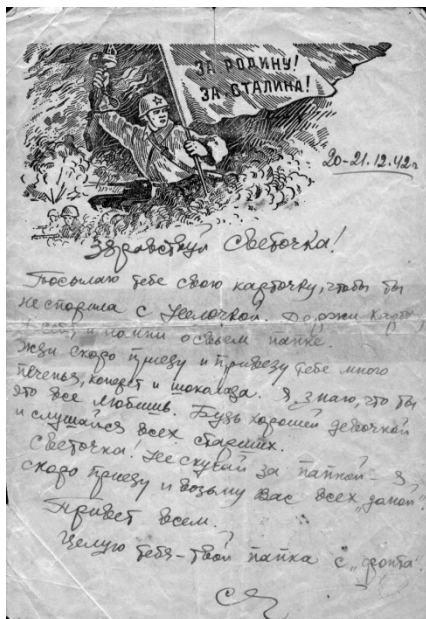 ЗА РОДИНУ!
ЗА СТАЛИНА!
20-21.12.42г
Здравствуй Светочка!
Посылаю тебе свою карточку, чтобы ты
не спорила с Нелочкой. Держи карточку
и помни о своем папке.
Жди скоро приеду и привезу тебе много
печенья, конфет и шоколада. Я знаю, что ты
это все любишь. Будь хорошей девочкой
и слушайся всех старших.
Светочка! Не скучай за папкой – я
скоро приеду и возьму вас всех „домой“.
Привет всем.
Целую тебя – твой папка с „фронта“.